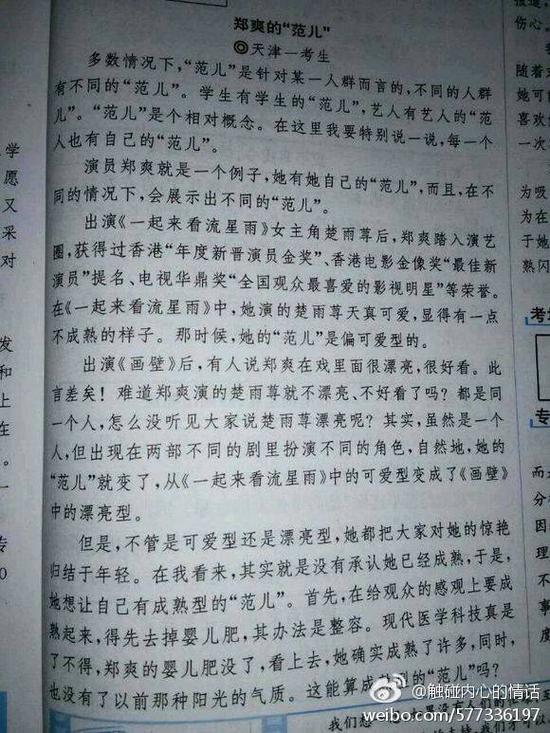 郑爽的“范儿”
◎天津一考生
多数情况下,“范儿”是针对某一人群而言的,不同的人群
有不同的“范儿”。学生有学生的“范儿”,艺人有艺人的“范
儿”。“范儿”是个相对概念。在这里我要特别说一说,每一个
人也有自己的“范儿”。
演员郑爽就是一个例子,她有她自己的“范儿”,而且,在不
同的情况下,会展示出不同的“范儿”。
出演《一起来看流星雨》女主角楚雨荨后,郑爽踏入演艺
圈,获得过香港“年度新晋演员金奖”、香港电影金像奖“最佳新
演员”提名、电视华鼎奖“全国观众最喜爱的影视明星”等荣誉。
在《一起来看流星雨》中,她演的楚雨荨天真可爱,显得有一点
不成熟的样子。那时候,她的“范儿”是偏可爱型的。
出演《画壁》后,有人说郑爽在戏里面很漂亮,很好看。此
言差矣!难道郑爽演的楚雨荨就不漂亮、不好看了吗?都是同
一个人,怎么没听见大家说楚雨荨漂亮呢?其实,虽然是一个
人,但出现在两部不同的剧里扮演不同的角色,自然地,她的
“范儿”就变了,从《一起来看流星雨》中的可爱型变成了《画壁》
中的漂亮型。
但是,不管是可爱型还是漂亮型,她都把大家对她的惊艳
归结于年轻。在我看来,其实就是没有承认她已经成熟,于是,
她想让自己有成熟型的“范儿”。首先,在给观众的感观上要成
熟起来,得先去掉婴儿肥,其办法是整容。现代医学科技真是
了不得,郑爽的婴儿肥没了,看上去,她确实成熟了许多,同时,
也没有了以前那种阳光的气质。这能算成熟型的“范儿”吗?
学
愿
又
采
对
发
和
上
在
。
一
传
0
报道,
伤心,
随着
她可
喜欢
一次
为吸
为在
于她
熟闪
考场
专
而
分
因
理
不
事
度
我们想
@触碰内心的情话
weibo.com/577336197